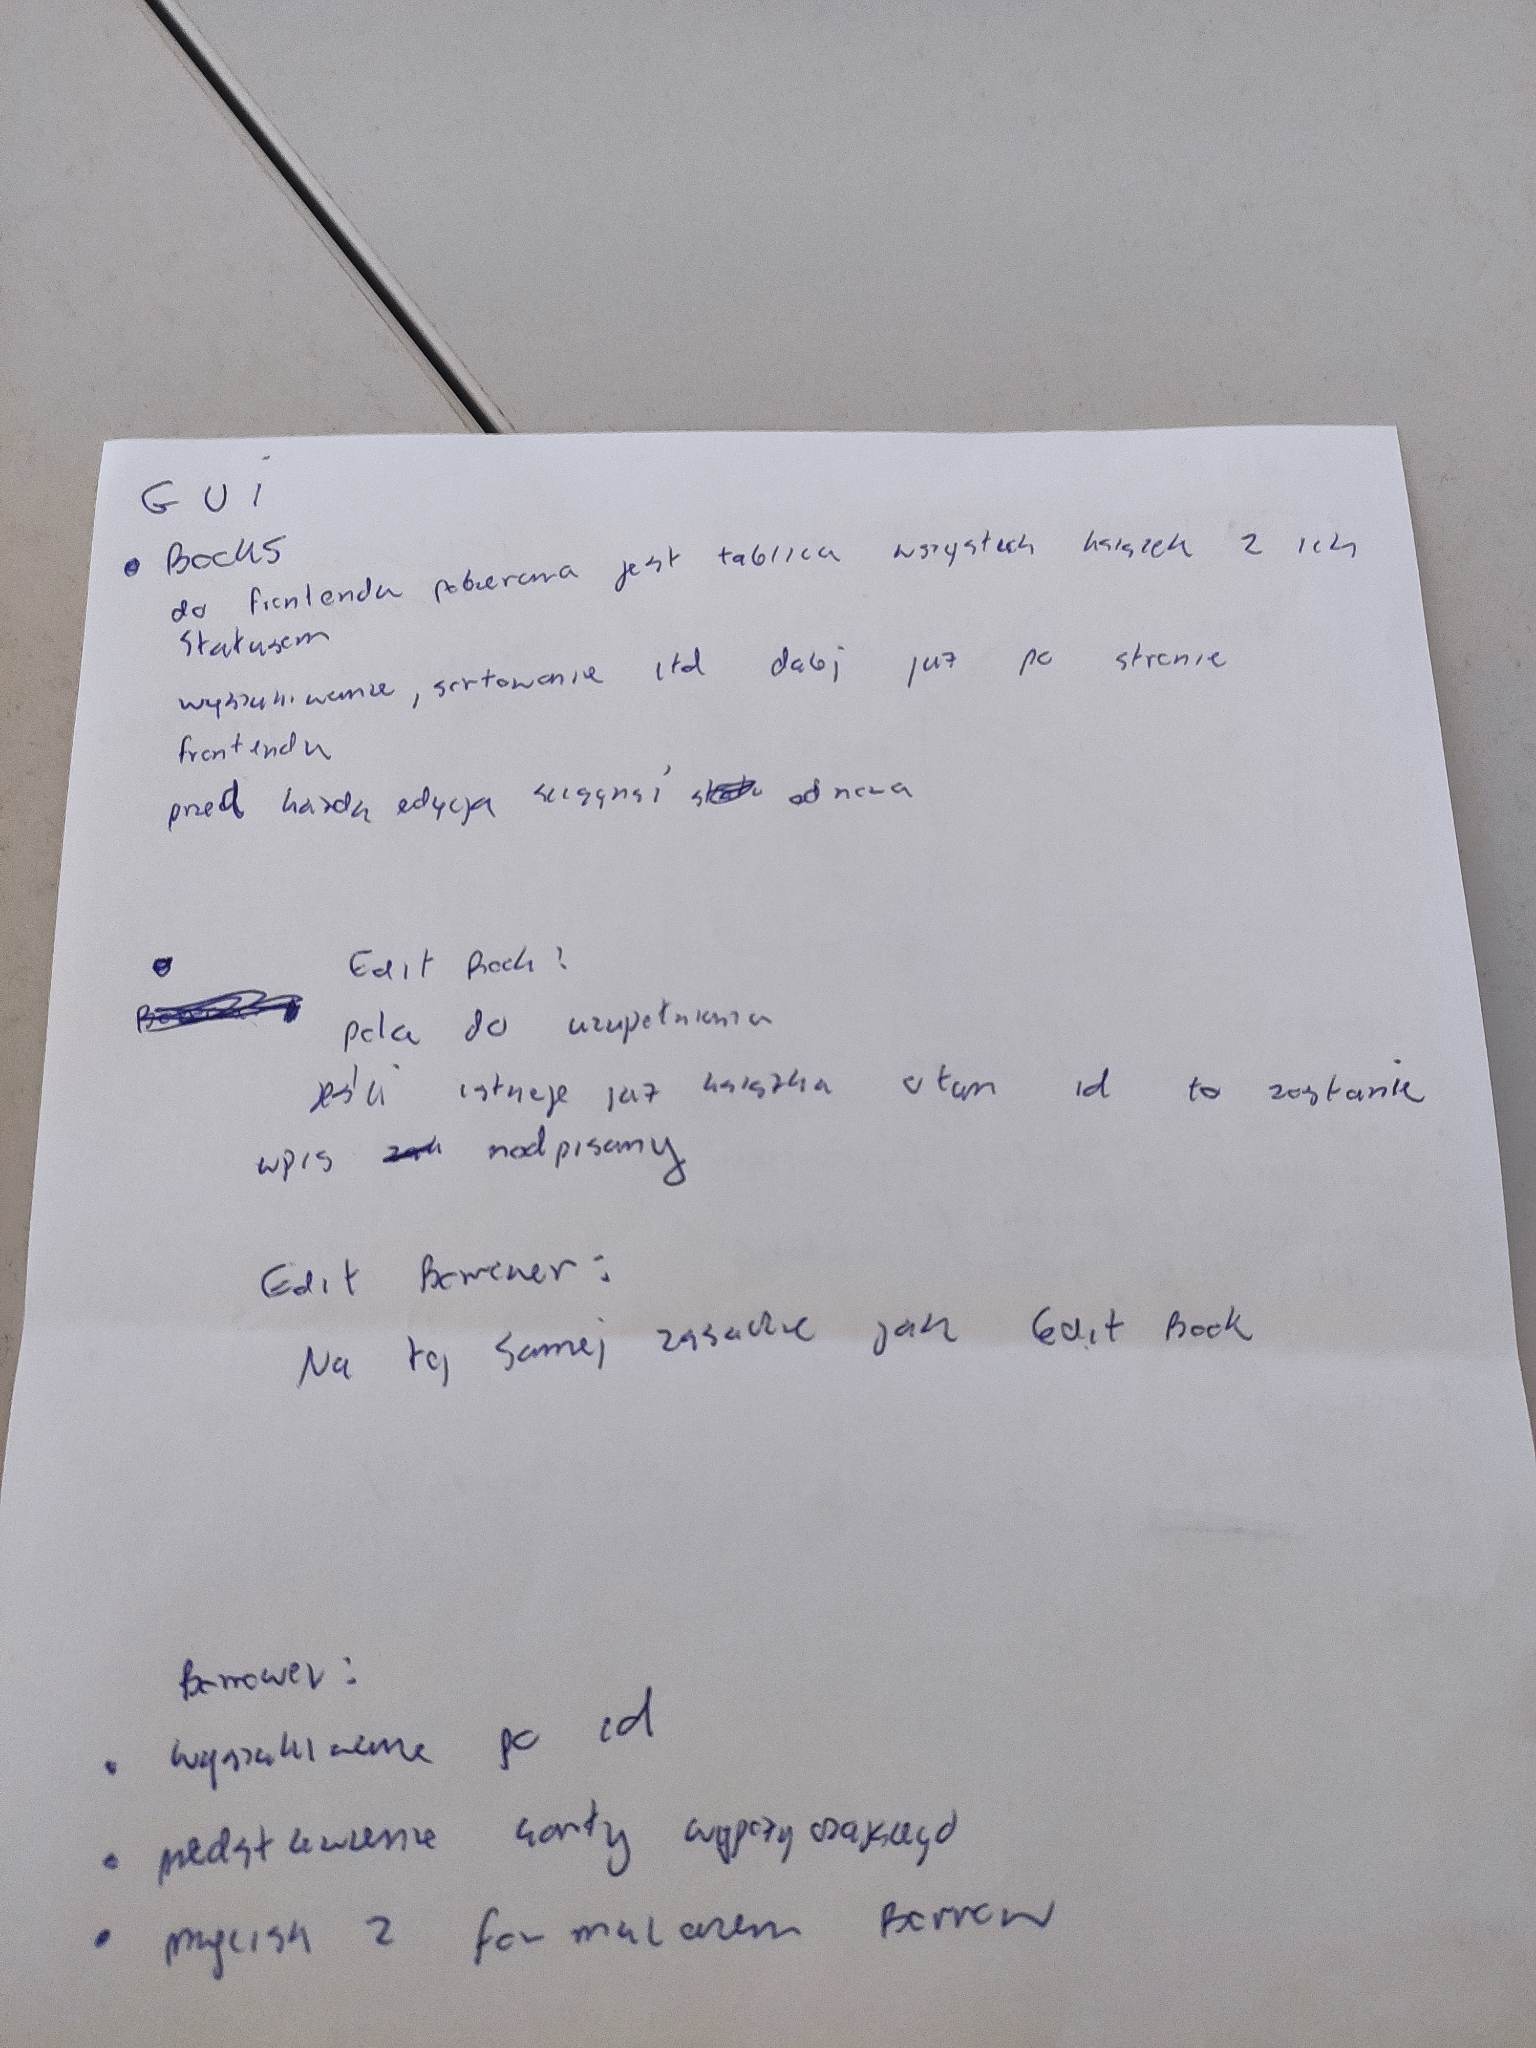 GUi
• Books
do frontendu pobierana jest tablica wszystkich książek z ich
statusem
wyszukiwanie, sortowanie itd dalej już po stronie
frontendu
przed każdą edycją ściągnąć od nowa
• Edit Book:
pola do uzupełnienia
jeśli istnieje już książka o tym id to zostanie
wpis nadpisany
Edit Borrower:
Na tej samej zasadzie jak Edit Book
Borrower:
• wyszukiwanie po id
• przedstawienie karty wypożyczającego
• przycisk z formularzem Borrow